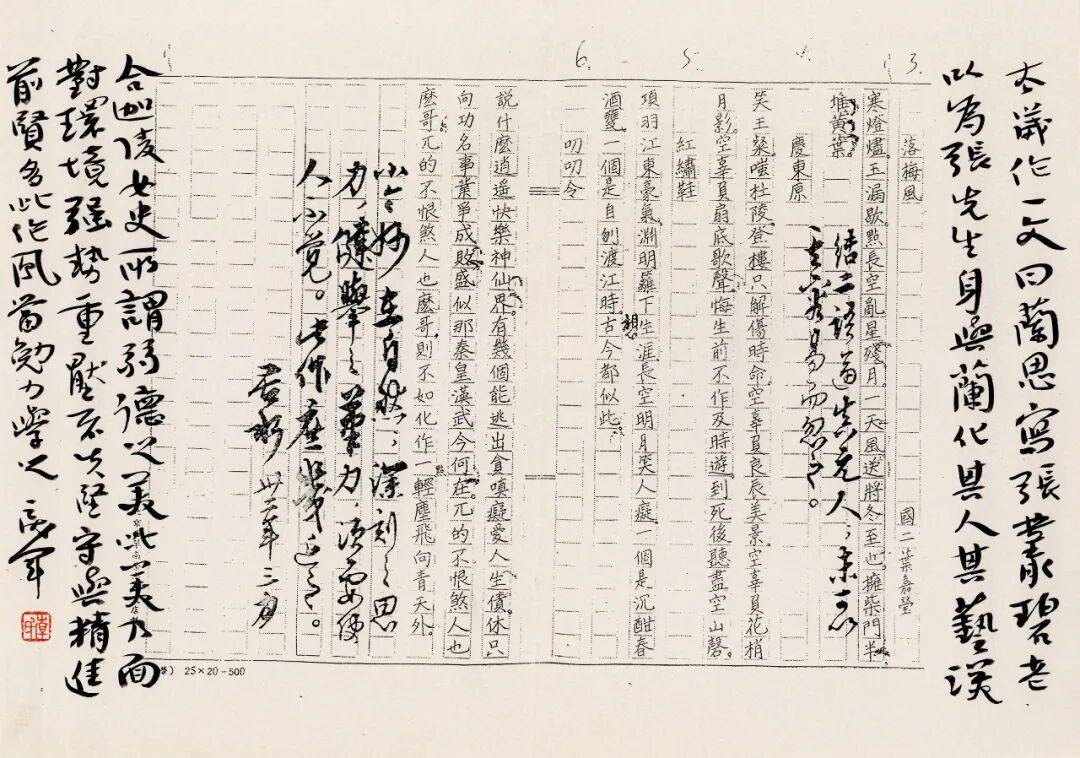 去歲作一文曰蘭思寫張叢碧老
以為張先生身與蘭化其人其藝
3.
4.
5.
6.
落梅風 國二葉嘉瑩
寒燈燼。玉漏歇。點長空亂星殘月。一天風送將冬至也。擁柴門半
堆黃葉。
結二語道出
而忽之。
慶東原
笑王粲。嗤杜陵。登樓只解傷時命。空辜負良辰美景。空辜負花梢
月影。空辜負扇底歌聲。悔生前不作及時遊。到死後聽盡空山磬。
紅繡鞋
項羽江東豪氣。淵明籬下生涯。長空明月笑人癡。一個是沉酣春
酒甕。一個是自刎渡江時。想古今都似此。
叨叨令
說什麼逍遙快樂神仙界。有幾個能逃出貪嗔癡愛人生債。休只
向功名事業爭成敗。盛似那秦皇漢武今何在。兀的不恨煞人也
麼哥。兀的不恨煞人也麼哥。則不如化作一輕塵飛向青天外。
小令妙在自然；深刻之思
力，健舉之筆力，須要使
人不覺。此作庶幾近之。
卅二年三月
25×20-500
合迦陵女史所謂弱德之美此美乃面
對環境強勢重壓不失堅守與精進
前賢多此作風當勉力學之